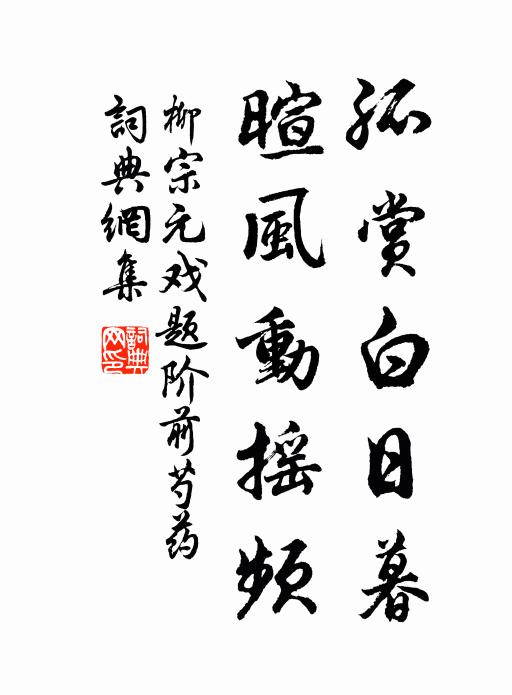 孤賞白日暮
暄風動摇頻
柳宗元戏题阶前芍药
詞典網集
詞典网印